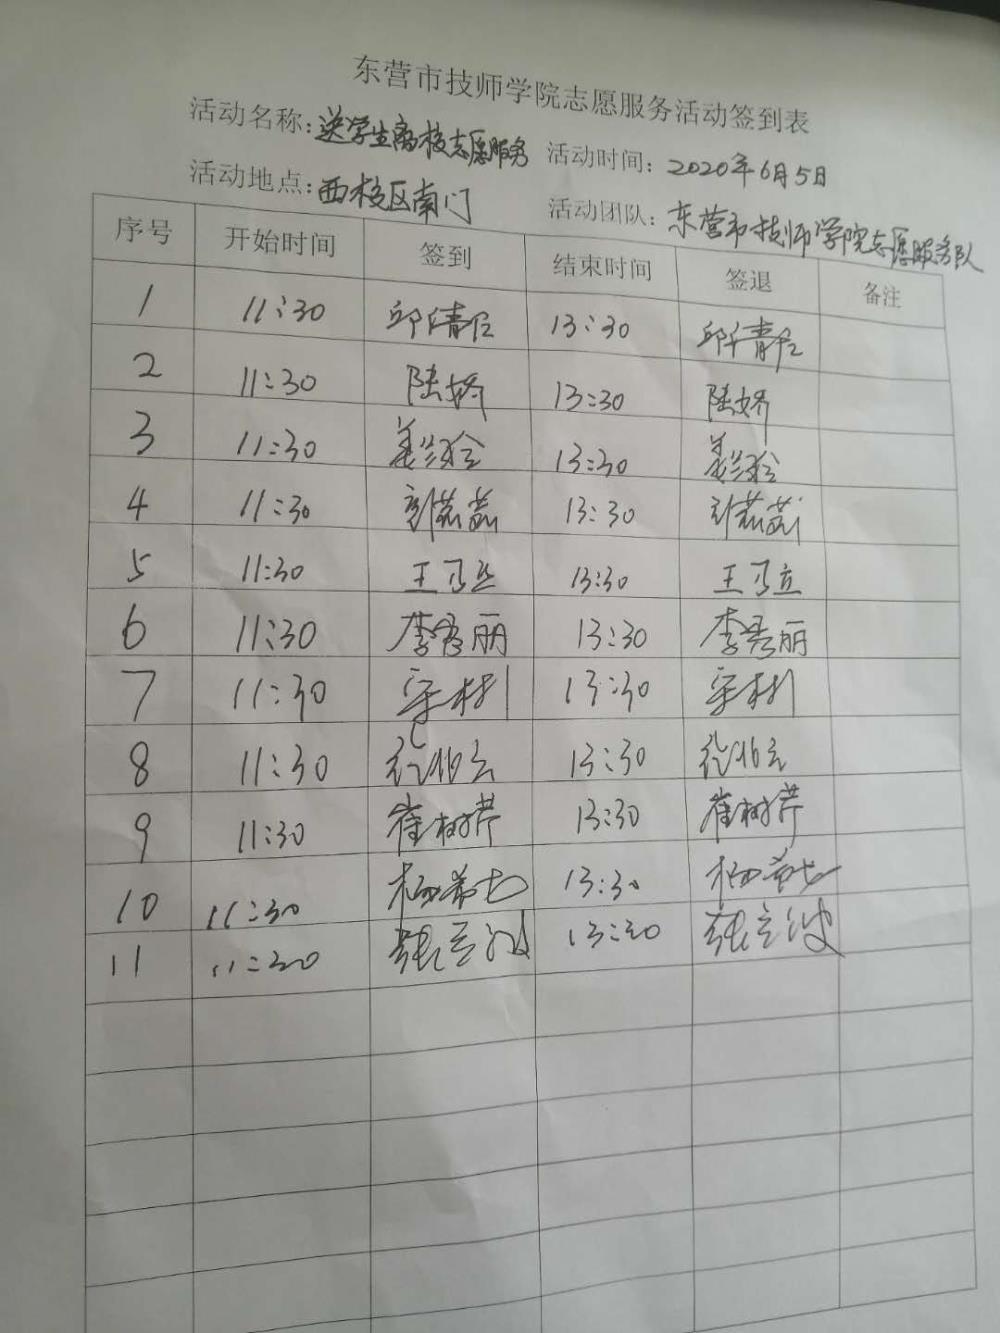 东营市技师学院志愿服务活动签到表
活动名称:送学生离校志愿服务 活动时间:2020年6月5日
活动地点:西校区南门 活动团队:东营市技师学院志愿服务队
序号 开始时间 签到 结束时间 签退 备注
1 11:30 13:30
2 11:30 陆娇 13:30 陆娇
3 11:30 姜玲 13:30 姜玲
4 11:30 刘茹茹 13:30 刘茹茹
5 11:30 王 13:30 王
6 11:30 李秀丽 13:30 李秀丽
7 11:30 宋彬 13:30 宋彬
8 11:30 13:30
9 11:30 崔树芹 13:30 崔树芹
10 11:30 杨 13:30 杨
11 11:30 张立波 13:30 张立波